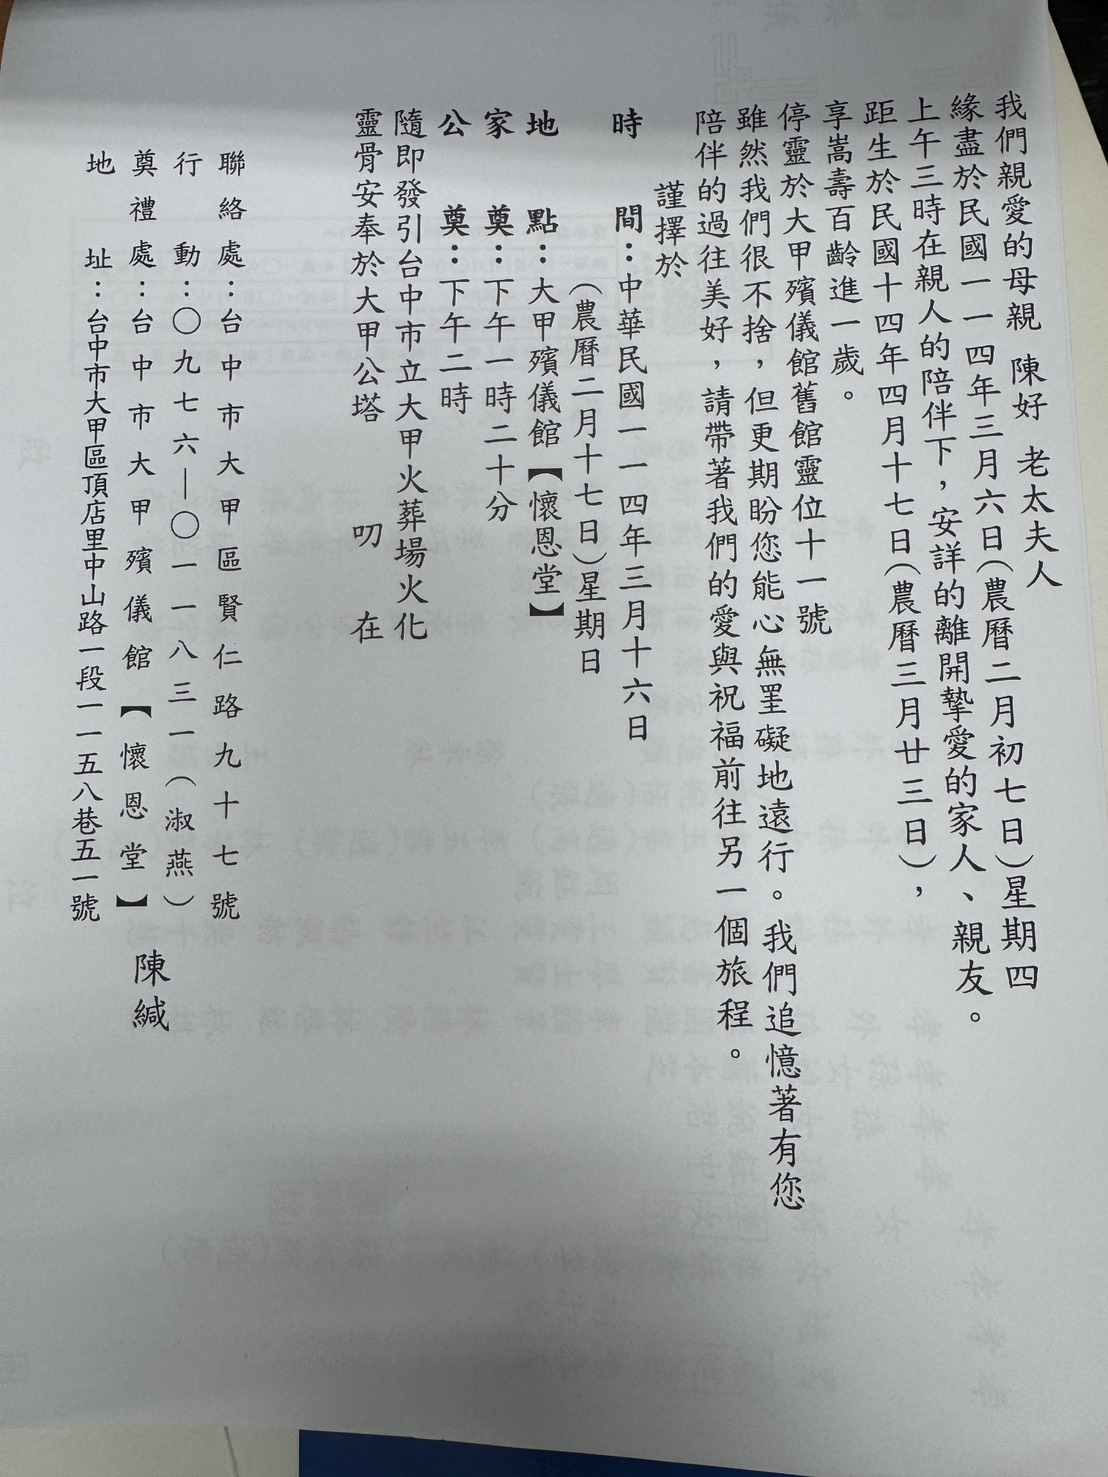 我們親愛的母親　陳好　老太夫人
緣盡於民國一一四年三月六日(農曆二月初七日)星期四
上午三時在親人的陪伴下，安詳的離開摯愛的家人、親友。
距生於民國十四年四月十七日(農曆三月廿三日)，
享嵩壽百齡進一歲。
停靈於大甲殯儀館舊館靈位十一號
雖然我們很不捨，但更期盼您能心無罣礙地遠行。我們追憶著有您
陪伴的過往美好，請帶著我們的愛與祝福前往另一個旅程。
謹擇於
時　間：中華民國一一四年三月十六日
(農曆二月十七日)星期日
地　點：大甲殯儀館【懷恩堂】
家　奠：下午一時二十分
公　奠：下午二時
隨即發引台中市立大甲火葬場火化
靈骨安奉於大甲公塔　叨　在
聯絡處：台中市大甲區賢仁路九十七號
行　動：〇九七六—〇一一八三一(淑燕)
奠禮處：台中市大甲殯儀館【懷恩堂】
地　址：台中市大甲區頂店里中山路一段一一五八巷五一號
陳緘